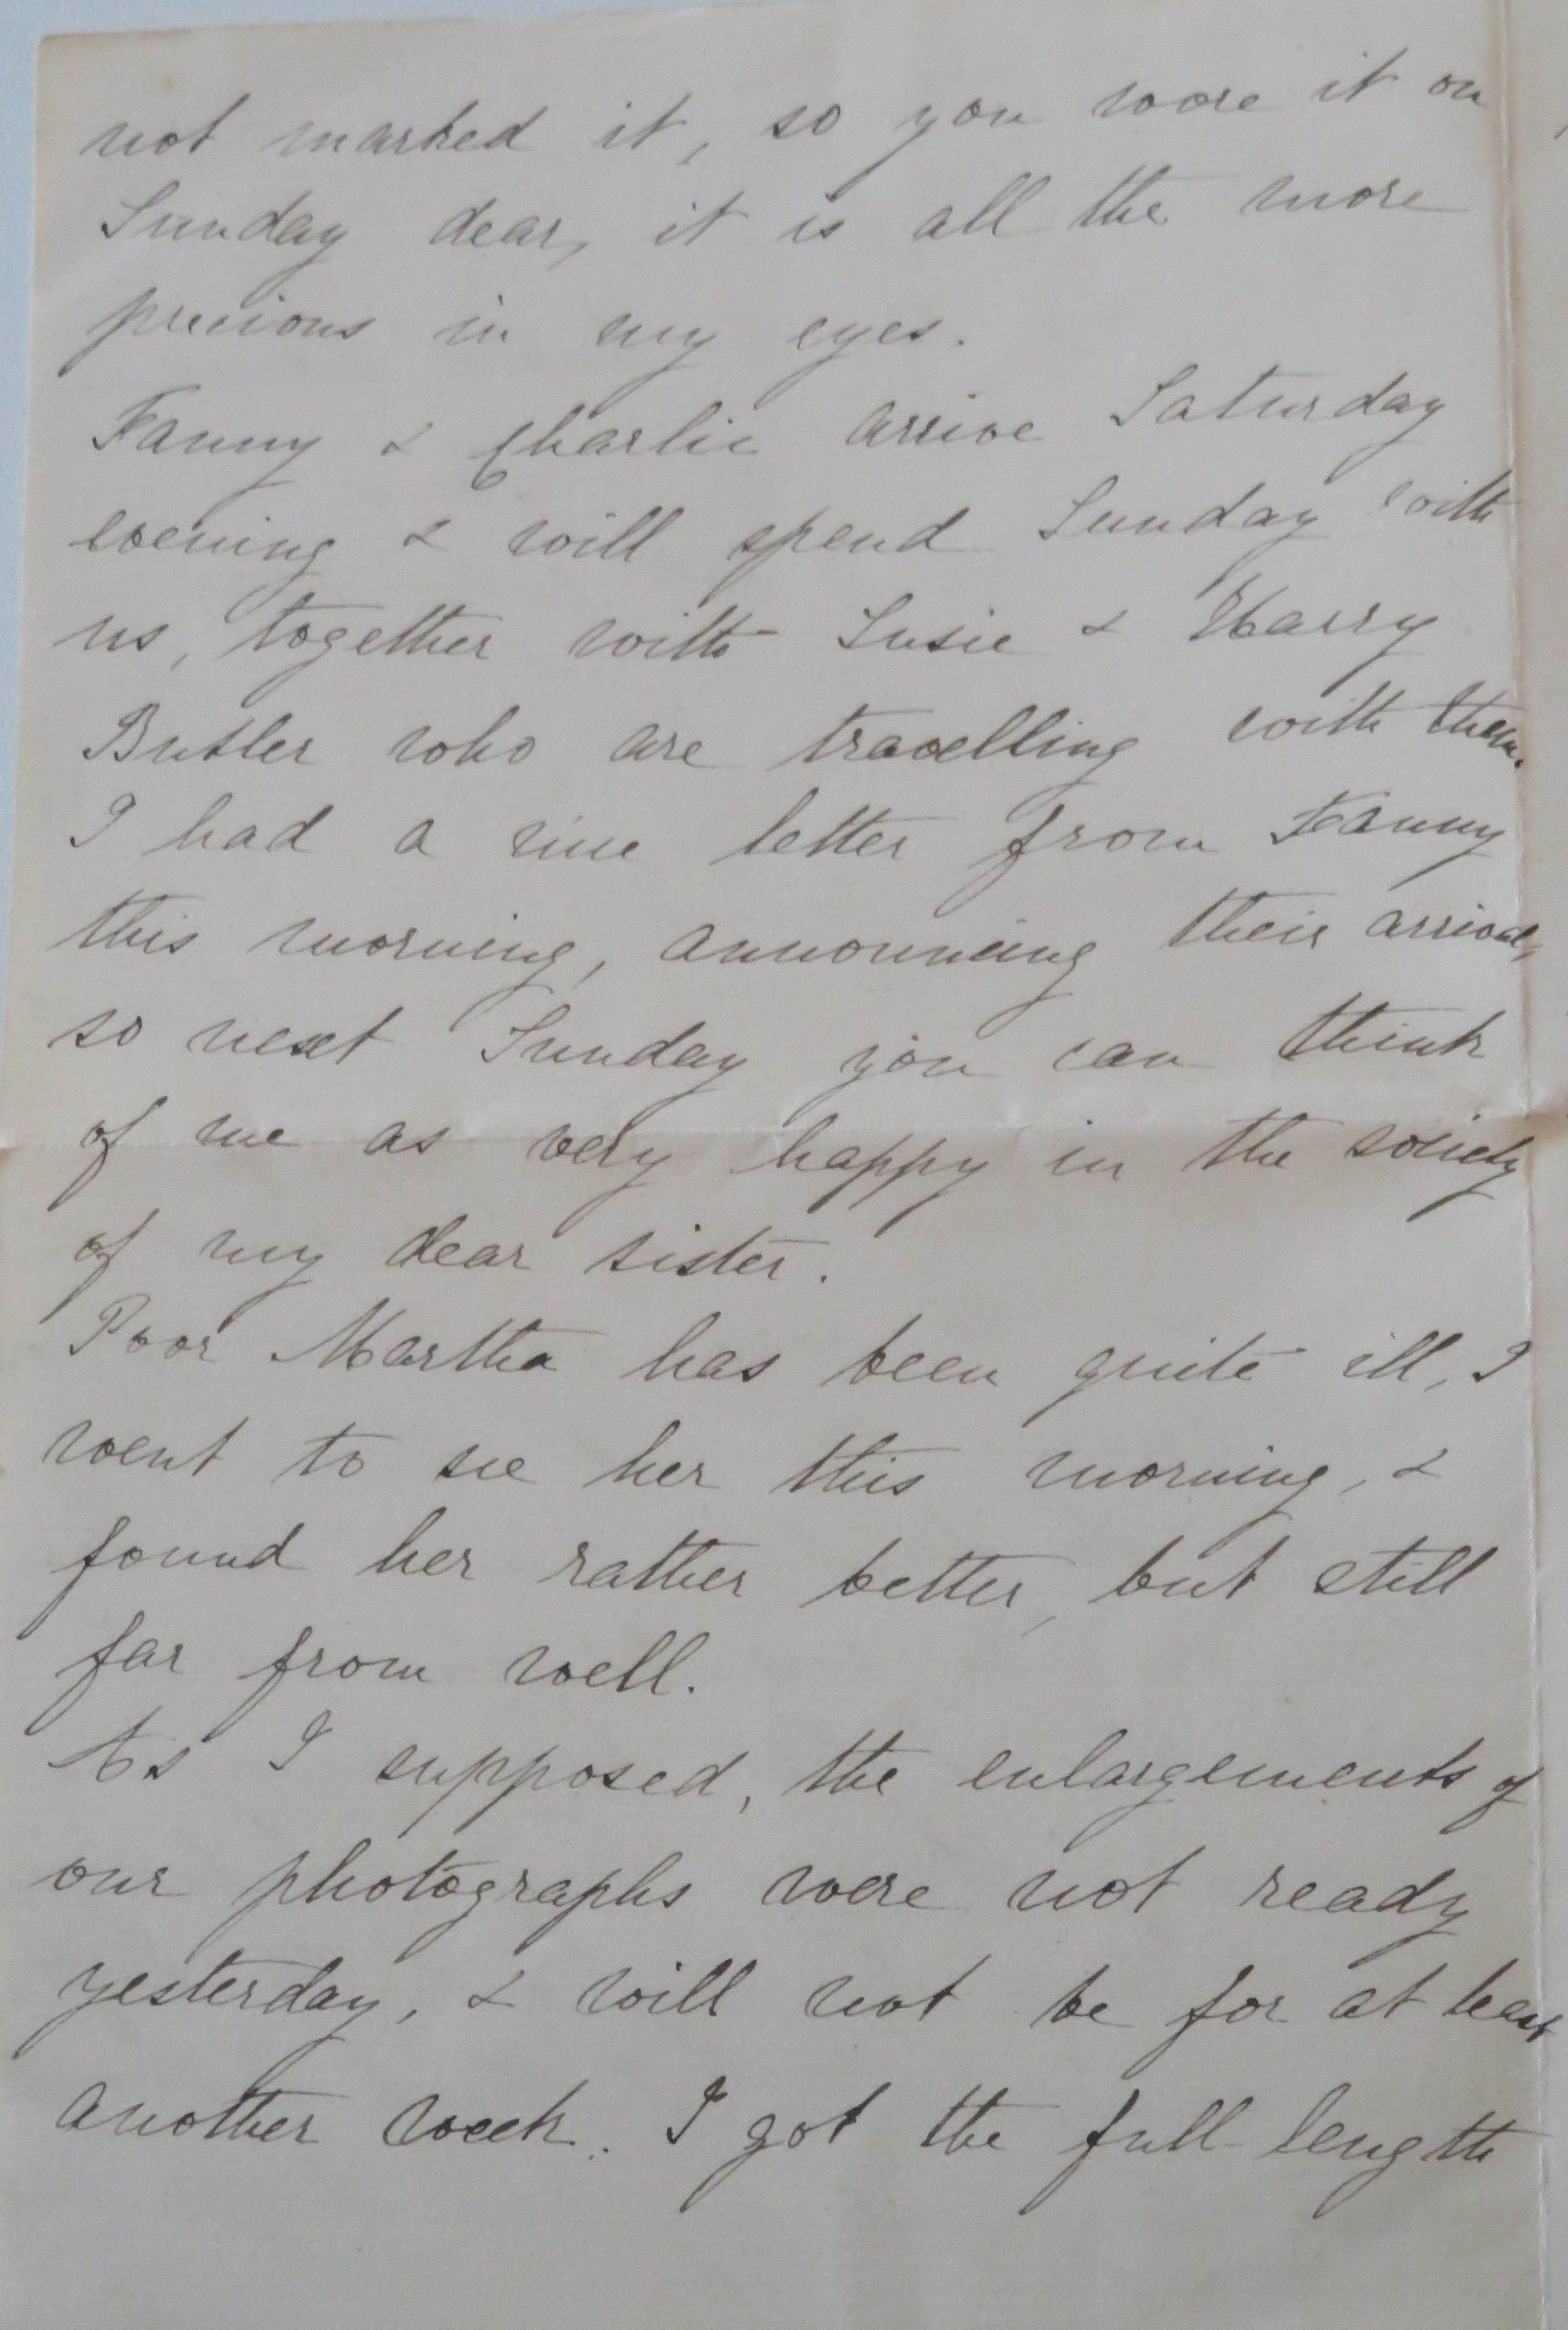 not marked it, so you wore it on
Sunday dear, it is all the more
precious in my eyes.
Fanny & Charlie arrive Saturday
evening & will spend Sunday with
us, together with Susie & Harry
Butler who are travelling with them.
I had a nice letter from Fanny
this morning, announcing their arrival,
so next Sunday you can think
of me as very happy in the society
of my dear sister.
Poor Martha has been quite ill, I
went to see her this morning, &
found her rather better, but still
far from well.
As I supposed, the enlargements of
our photographs were not ready
yesterday, & will not be for at least
another week. I got the full length